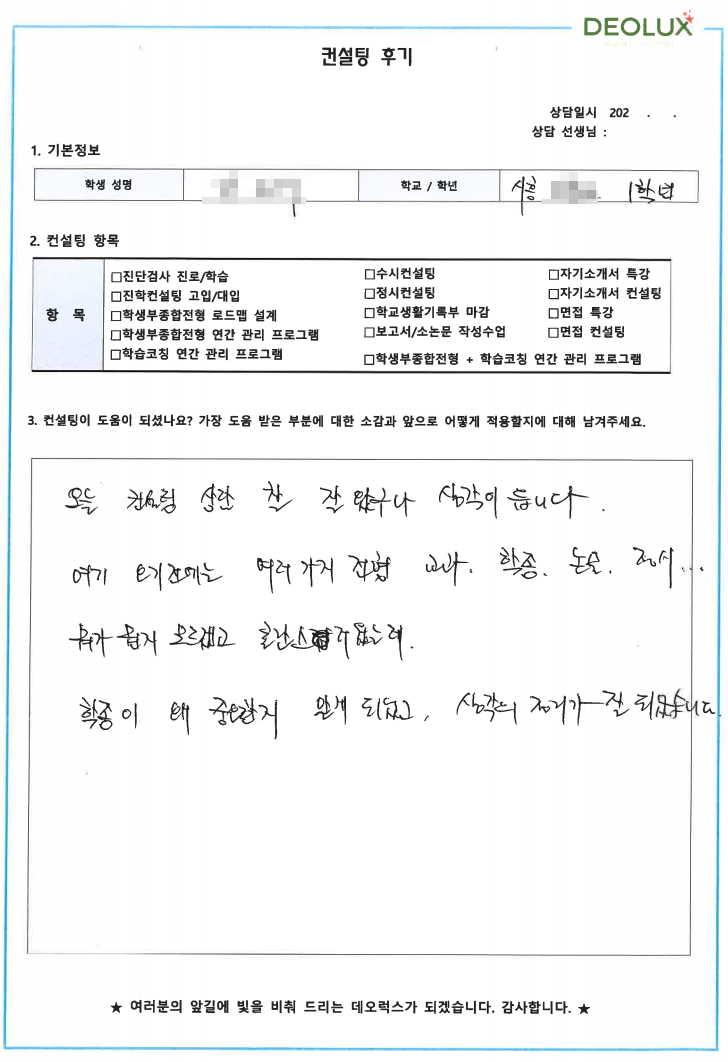 DEOLUX
컨설팅 후기
상담일시 202 . .
상담 선생님 :
1. 기본정보
학생 성명 학교 / 학년 시흥 1학년
2. 컨설팅 항목
항 목
□진단검사 진로/학습 □수시컨설팅 □자기소개서 특강
□진학컨설팅 고입/대입 □정시컨설팅 □자기소개서 컨설팅
□학생부종합전형 로드맵 설계 □학교생활기록부 마감 □면접 특강
□학생부종합전형 연간 관리 프로그램 □보고서/소논문 작성수업 □면접 컨설팅
□학습코칭 연간 관리 프로그램 □학생부종합전형 + 학습코칭 연간 관리 프로그램
3. 컨설팅이 도움이 되셨나요? 가장 도움 받은 부분에 대한 소감과 앞으로 어떻게 적용할지에 대해 남겨주세요.
오늘 컨설팅 상담 참 잘 왔구나 생각이 듭니다.
여기 오기전에는 여러가지 전형 교과, 학종, 논술, 정시...
뭐가 뭔지 모르겠고 혼란스러웠는데.
학종이 왜 중요한지 알게 되었고, 생각의 정리가 잘 되었습니다.
★ 여러분의 앞길에 빛을 비춰 드리는 데오럭스가 되겠습니다. 감사합니다. ★